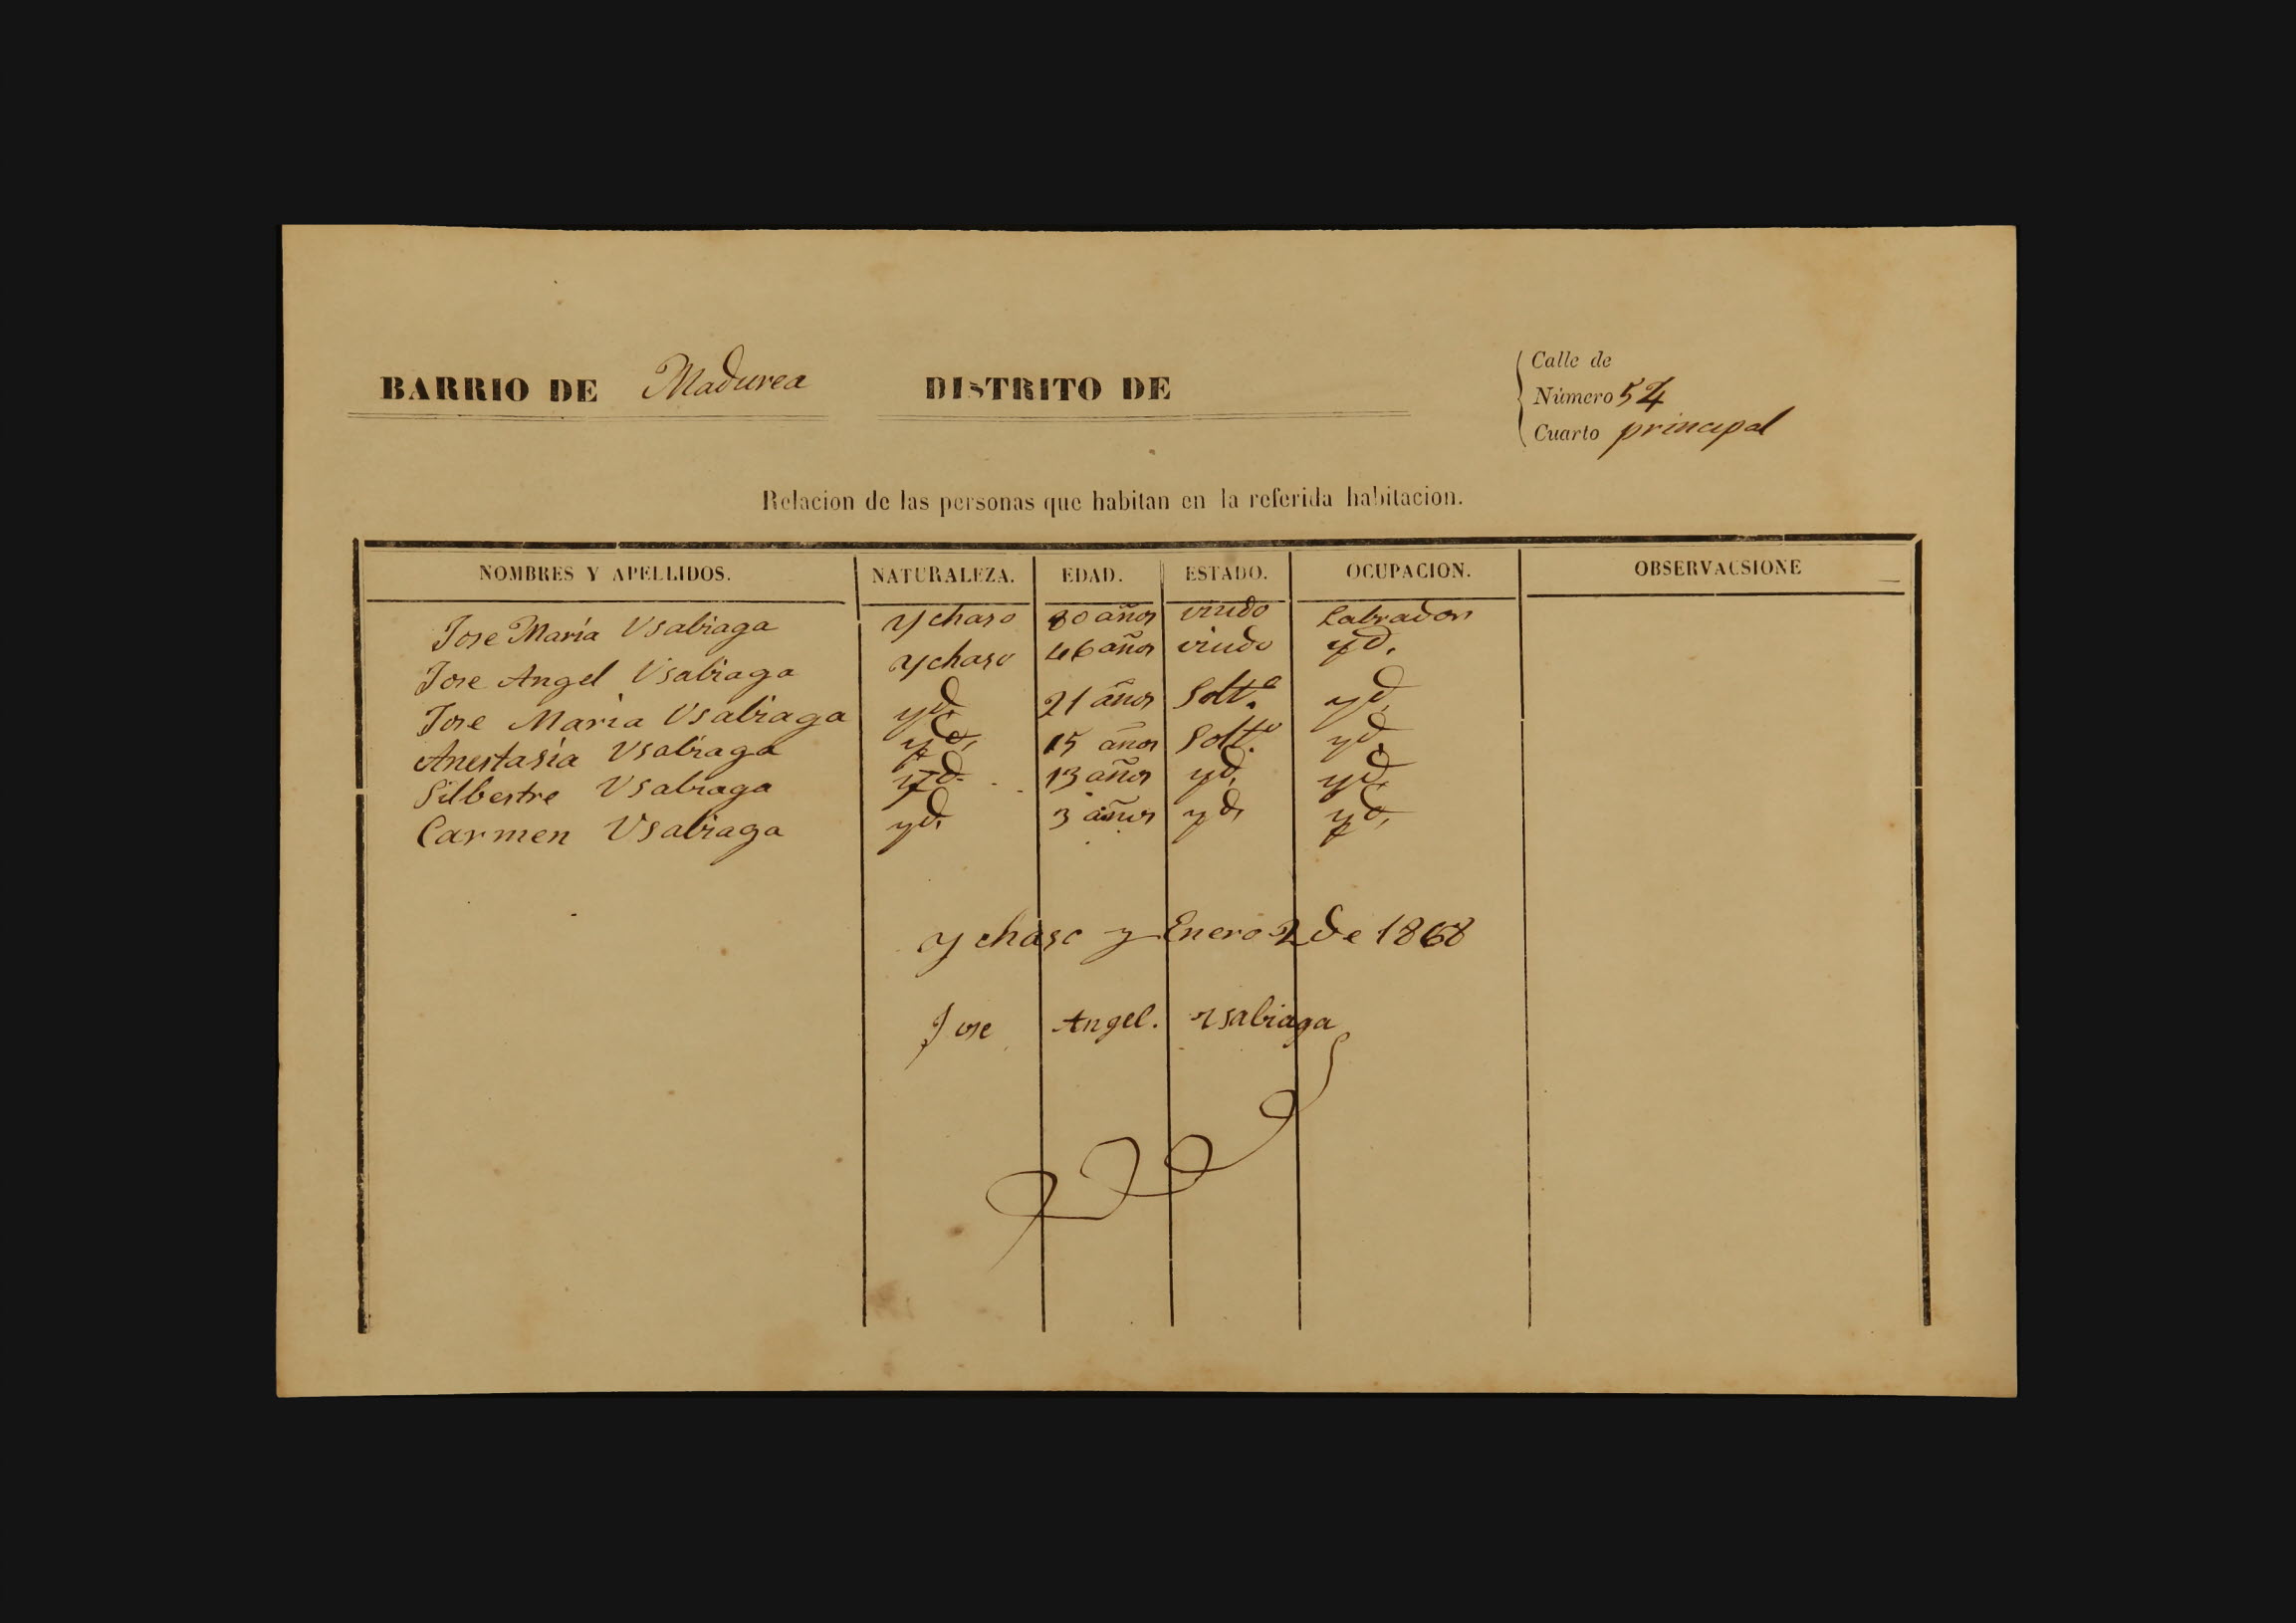 BARRIO DE Madurea DISTRITO DE
Calle de
Número 54
Cuarto principal
Relacion de las personas que habitan en la referida habitacion.
NOMBRES Y APELLIDOS. NATURALEZA. EDAD. ESTADO. OCUPACION. OBSERVACSIONE
Jose María Vsabiaga Ychaso 80 años viudo Labrador
Jose Angel Vsabiaga Ychaso 46 años viudo yd.
Jose Maria Vsabiaga yd. 21 años Solt.o yd.
Anestasia Vsabiaga yd. 15 años Solt.o yd.
Silbestre Vsabiaga yd. 13 años yd. yd.
Carmen Vsabiaga yd. 3 años yd. yd.
Ychaso y Enero 2 de 1868
Jose Angel. Vsabiaga